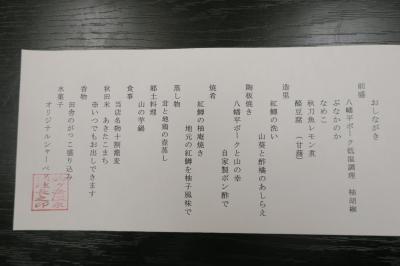 おしながき
前盛
八幡平ポーク低温調理　柚胡椒
ぶなかのか
なめこ
秋刀魚レモン煮
醍豆腐　（甘海老）
造里
紅鱒の洗い
山葵と酢橘のあしらえ
陶板焼き
八幡平ポークと山の幸
自家製ポン酢で
焼肴
紅鱒の柚庵焼き
地元の紅鱒を柚子風味で
蒸し物
茸と地鶏の壺蒸し
郷土料理
山の芋鍋
食事
当店名物十割蕎麦
秋田米　あきたこまち
※いつでもお出しできます
香物
田舎のがっこ盛り込み
水菓子
オリジナルシャーベット